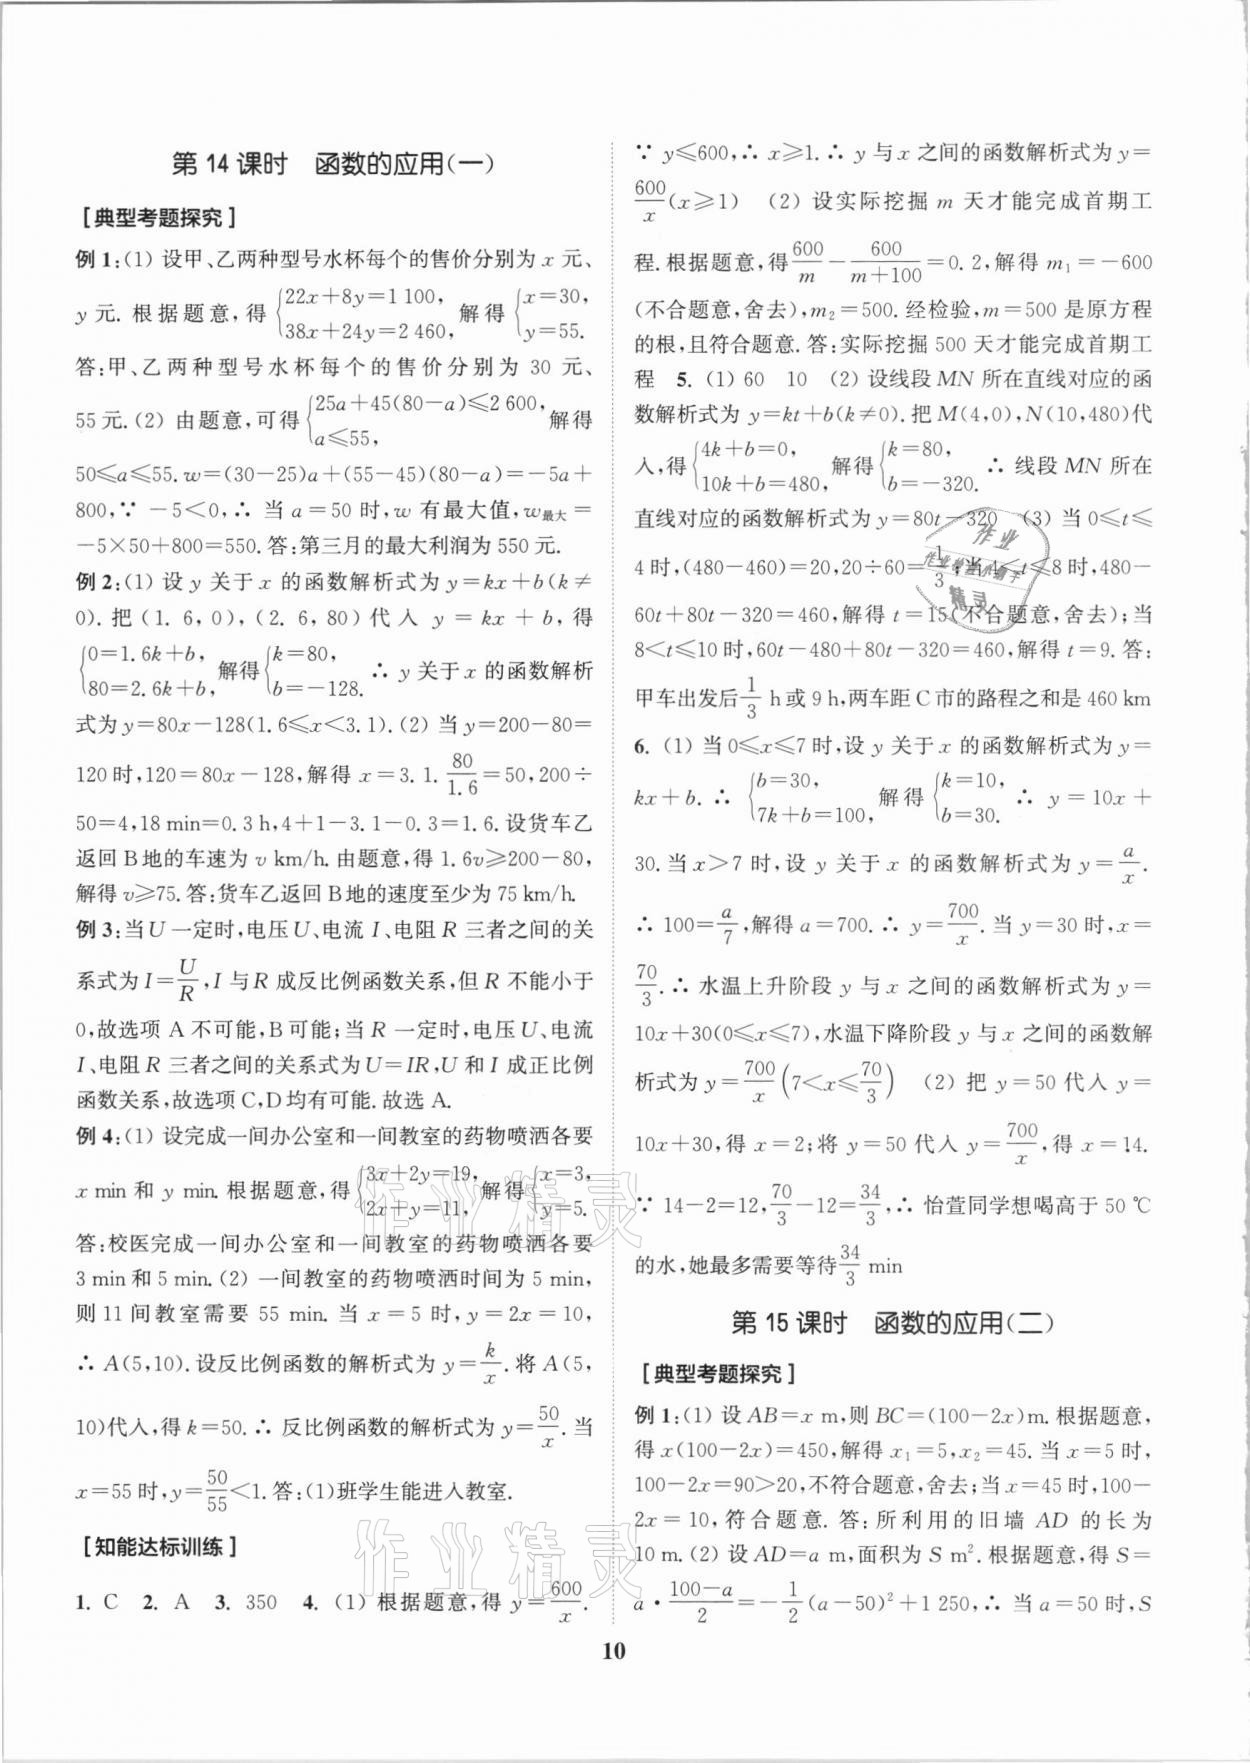 第 14 课时　函数的应用(一)
[典型考题探究]
例 1:(1) 设甲、乙两种型号水杯每个的售价分别为 x 元、
y 元. 根据题意,得 {22x+8y=1 100, 38x+24y=2 460, 解得 {x=30, y=55.
答:甲、乙两种型号水杯每个的售价分别为 30 元、
55 元.(2) 由题意,可得 {25a+45(80-a)≤2 600, a≤55, 解得
50≤a≤55. w=(30-25)a+(55-45)(80-a)=-5a+
800,∵ -5<0,∴ 当 a=50 时,w 有最大值,w最大=
-5×50+800=550. 答:第三月的最大利润为 550 元.
例 2:(1) 设 y 关于 x 的函数解析式为 y=kx+b(k≠
0). 把 (1.6,0),(2.6,80) 代入 y=kx+b,得
{0=1.6k+b, 80=2.6k+b, 解得 {k=80, b=-128. ∴ y 关于 x 的函数解析
式为 y=80x-128(1.6≤x<3.1). (2) 当 y=200-80=
120 时,120=80x-128,解得 x=3.1. 80/1.6=50,200÷
50=4,18 min=0.3 h,4+1-3.1-0.3=1.6. 设货车乙
返回 B 地的车速为 v km/h. 由题意,得 1.6v≥200-80,
解得 v≥75. 答:货车乙返回 B 地的速度至少为 75 km/h.
例 3:当 U 一定时,电压 U、电流 I、电阻 R 三者之间的关
系式为 I=U/R,I 与 R 成反比例函数关系,但 R 不能小于
0,故选项 A 不可能,B 可能;当 R 一定时,电压 U、电流
I、电阻 R 三者之间的关系式为 U=IR,U 和 I 成正比例
函数关系,故选项 C,D 均有可能. 故选 A.
例 4:(1) 设完成一间办公室和一间教室的药物喷洒各要
x min 和 y min. 根据题意,得 {3x+2y=19, 2x+y=11, 解得 {x=3, y=5.
答:校医完成一间办公室和一间教室的药物喷洒各要
3 min 和 5 min. (2) 一间教室的药物喷洒时间为 5 min,
则 11 间教室需要 55 min. 当 x=5 时,y=2x=10,
∴ A(5,10). 设反比例函数的解析式为 y=k/x. 将 A(5,
10)代入,得 k=50. ∴ 反比例函数的解析式为 y=50/x. 当
x=55 时,y=50/55<1. 答:(1)班学生能进入教室.
[知能达标训练]
1. C　2. A　3. 350　4. (1) 根据题意,得 y=600/x.
∵ y≤600,∴ x≥1. ∴ y 与 x 之间的函数解析式为 y=
600/x(x≥1)　(2) 设实际挖掘 m 天才能完成首期工
程. 根据题意,得 600/m-600/(m+100)=0.2,解得 m₁=-600
(不合题意,舍去),m₂=500. 经检验,m=500 是原方程
的根,且符合题意. 答:实际挖掘 500 天才能完成首期工
程　5. (1) 60　10　(2) 设线段 MN 所在直线对应的函
数解析式为 y=kt+b(k≠0). 把 M(4,0),N(10,480)代
入,得 {4k+b=0, 10k+b=480, 解得 {k=80, b=-320. ∴ 线段 MN 所在
直线对应的函数解析式为 y=80t-320　(3) 当 0≤t≤
4 时,(480-460)=20,20÷60=1/3;当 4<t≤8 时,480-
60t+80t-320=460,解得 t=15(不合题意,舍去);当
8<t≤10 时,60t-480+80t-320=460,解得 t=9. 答:
甲车出发后 1/3 h 或 9 h,两车距 C 市的路程之和是 460 km
6. (1) 当 0≤x≤7 时,设 y 关于 x 的函数解析式为 y=
kx+b. ∴ {b=30, 7k+b=100, 解得 {k=10, b=30. ∴ y=10x+
30. 当 x>7 时,设 y 关于 x 的函数解析式为 y=a/x.
∴ 100=a/7,解得 a=700. ∴ y=700/x. 当 y=30 时,x=
70/3. ∴ 水温上升阶段 y 与 x 之间的函数解析式为 y=
10x+30(0≤x≤7),水温下降阶段 y 与 x 之间的函数解
析式为 y=700/x(7<x≤70/3)　(2) 把 y=50 代入 y=
10x+30,得 x=2;将 y=50 代入 y=700/x,得 x=14.
∵ 14-2=12,70/3-12=34/3,∴ 怡萱同学想喝高于 50 ℃
的水,她最多需要等待 34/3 min
第 15 课时　函数的应用(二)
[典型考题探究]
例 1:(1) 设 AB=x m,则 BC=(100-2x)m. 根据题意,
得 x(100-2x)=450,解得 x₁=5,x₂=45. 当 x=5 时,
100-2x=90>20,不符合题意,舍去;当 x=45 时,100-
2x=10,符合题意. 答:所利用的旧墙 AD 的长为
10 m. (2) 设 AD=a m,面积为 S m². 根据题意,得 S=
a·(100-a)/2=-1/2(a-50)²+1 250,∴ 当 a=50 时,S
10
作业精灵
作业精灵
作业
精灵